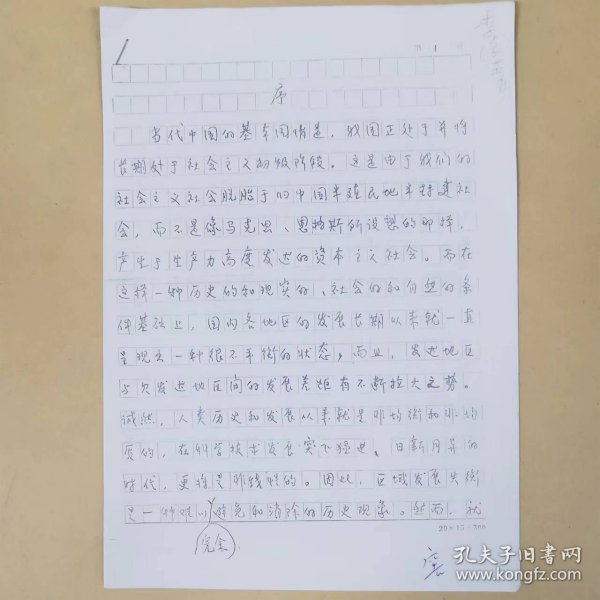 第 1 页
序
当代中国的基本国情是，我国正处于并将
长期处于社会主义初级阶段。这是由于我们的
社会主义社会脱胎于旧中国半殖民地半封建社
会，而不是像马克思、恩格斯所设想的那样，
产生于生产力高度发达的资本主义社会。而在
这样一种历史的和现实的、社会的和自然的条
件基础上，国内各地区的发展长期以来就一直
呈现出一种很不平衡的状态，而且，发达地区
与欠发达地区间的发展差距有不断拉大之势。
诚然，人类历史和发展从来就是非均衡和非均
质的，在科学技术发展突飞猛进、日新月异的
时代，更将是非线性的。因此，区域发展失衡
是一种难以避免和消除的历史现象。然而，就
完全
20×15=300
孔夫子旧书网
www.kongfz.com